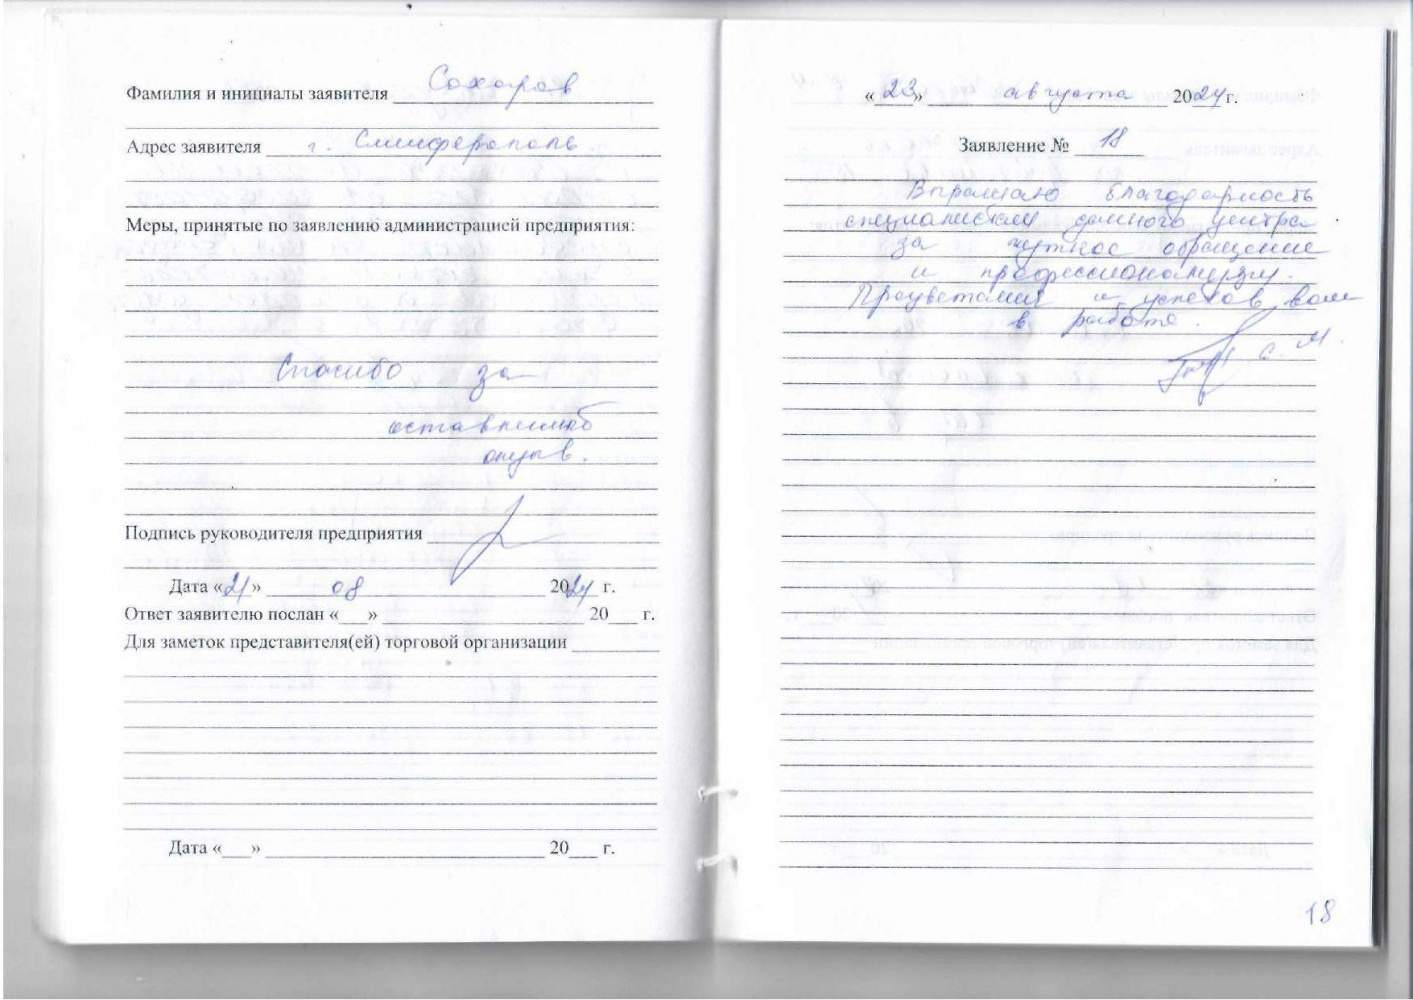 Фамилия и инициалы заявителя Сахаров
Адрес заявителя г. Симферополь
Меры, принятые по заявлению администрацией предприятия:
Спасибо за
оставленный
отзыв.
Подпись руководителя предприятия
Дата «21» 08 2024 г.
Ответ заявителю послан «___» ___ 20___ г.
Для заметок представителя(ей) торговой организации
Дата «___» ___ 20___ г.
«23» августа 2024 г.
Заявление № 18
Выражаю благодарность
специалистам данного центра
за чуткое обращение
и профессионализм.
Процветания и успехов вам
в работе.
С. М.
18